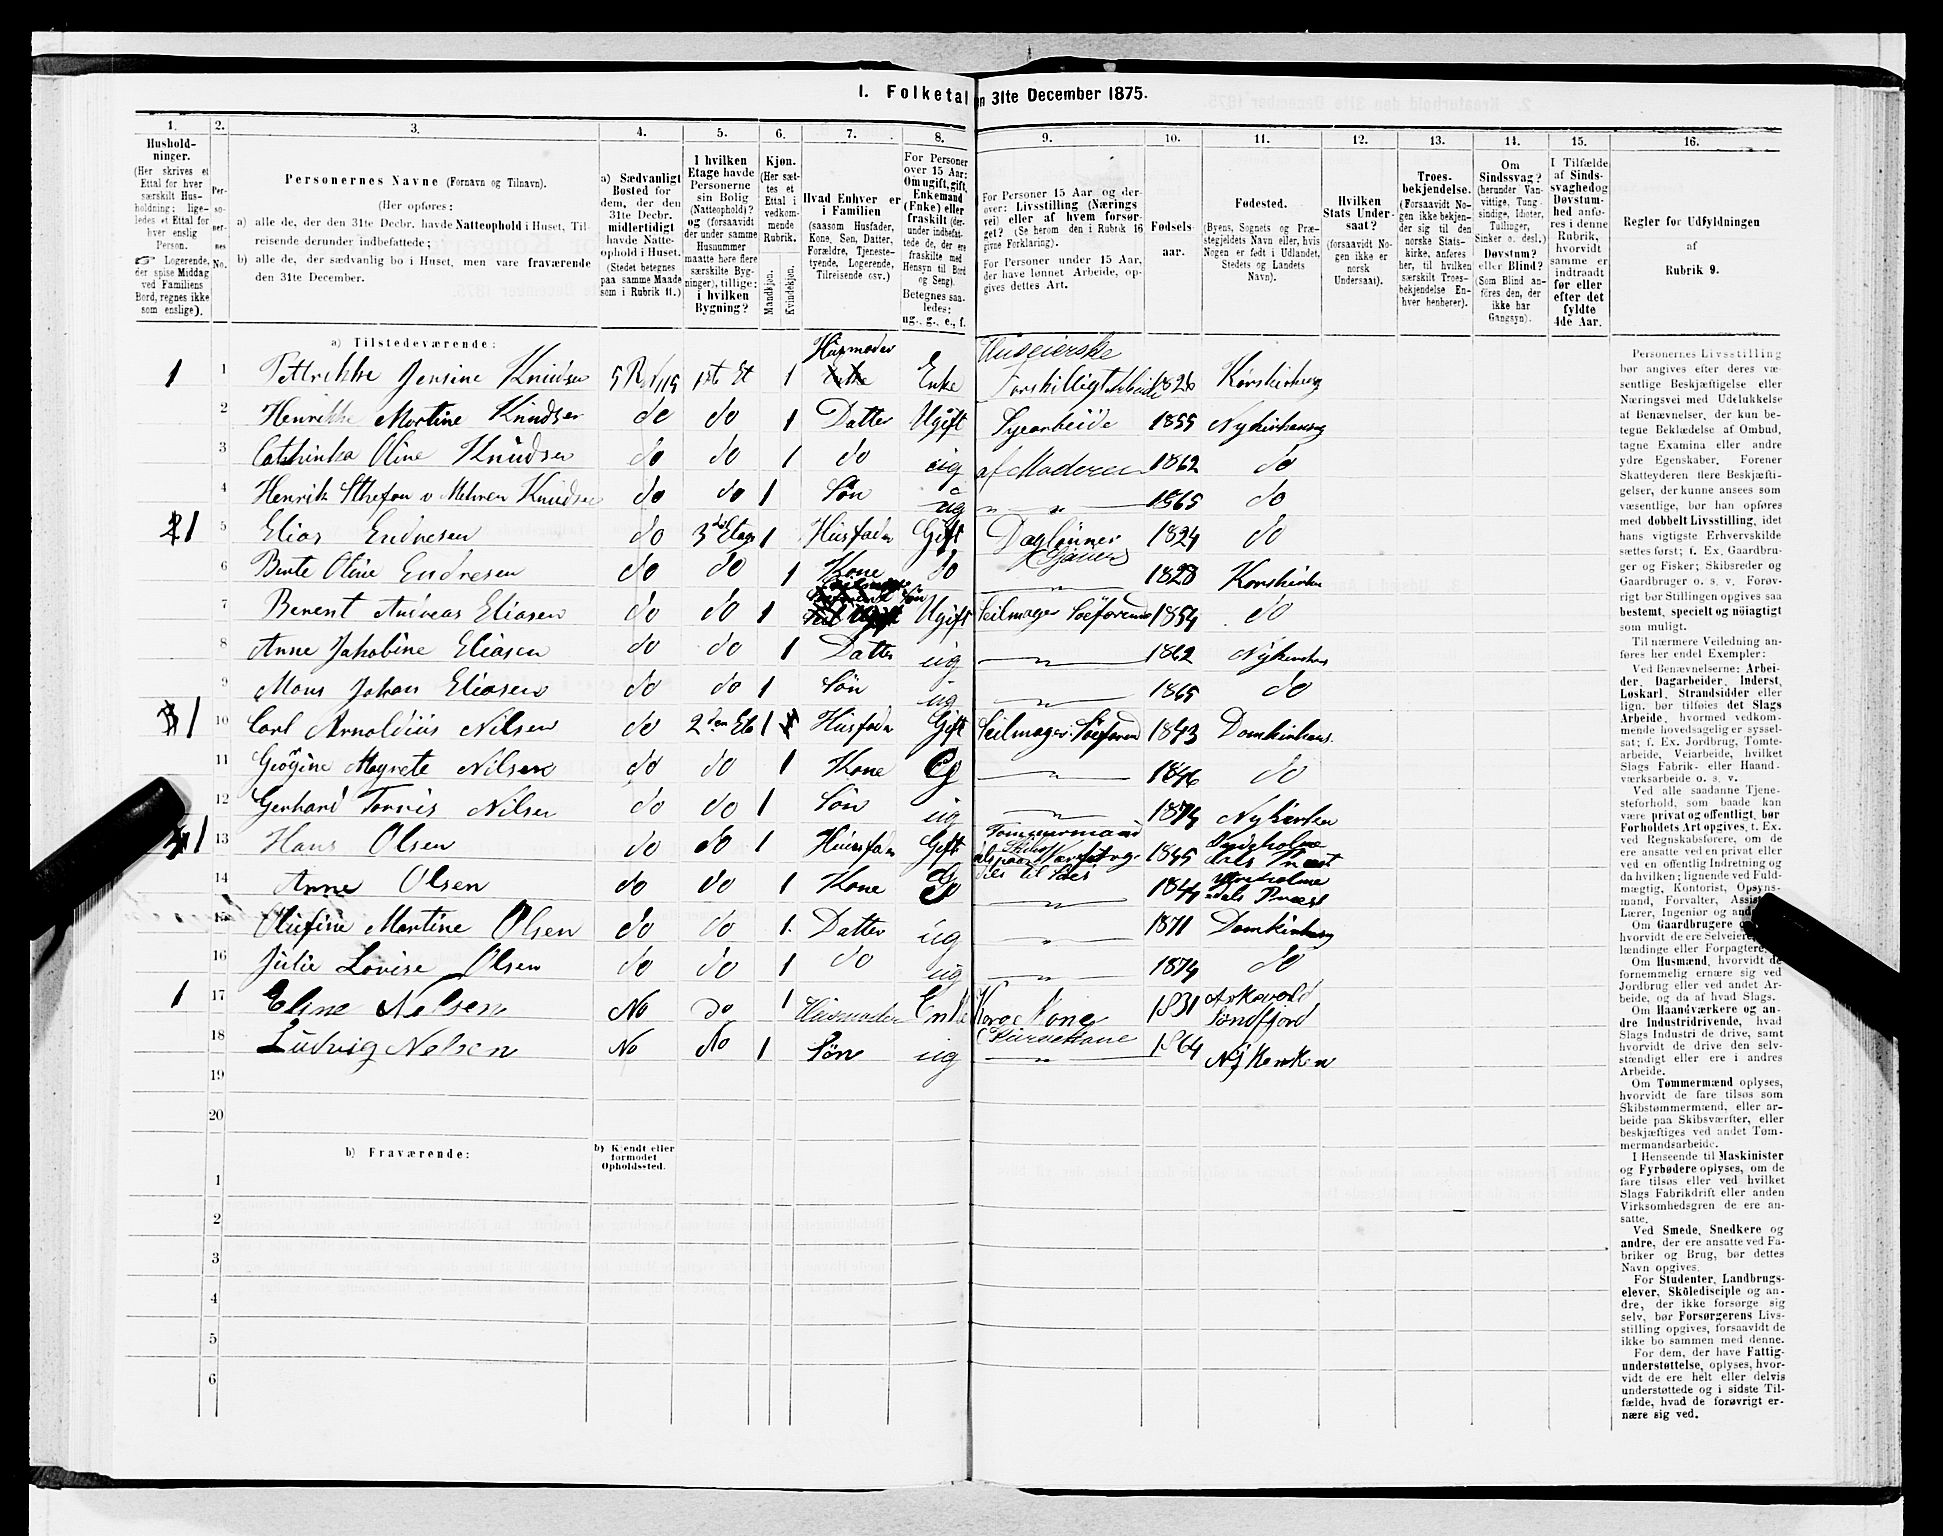 1. Folketal
n 31te December 1875.
1.
Hushold-
ninger.
(Her skrives et
Ettal for hver
særskilt Hus-
holdning; lige-
ledes et Ettal for
hver enslig
Person.
Logerende,
der spise Middag
ved Familiens
Bord, regnes ikke
som enslige).
2.
Per-
so-
ner-
nes
No.
3.
Personernes Navne (Fornavn og Tilnavn).
(Her opføres:
a) alle de, der den 31te Decbr. havde Natteophold i Huset, Til-
reisende derunder indbefattede;
b) alle de, der sædvanlig bo i Huset, men vare fraværende
den 31te December.
4.
a) Sædvanligt
Bosted for
dem, der den
31te Decbr.
midlertidigt
havde Natte-
ophold i Huset.
(Stedet betegnes
paa samme Maade
som i Rubrik 11.)
5.
I hvilken
Etage havde
Personerne
sin Bolig
(Natteophold)?
og (forsaavidt
der under samme
Husnummer
maatte høre flere
særskilte Byg-
ninger), tillige:
i hvilken
Bygning?
6.
Kjøn.
(Her sæt-
tes et
Ettal i
vedkom-
mende
Rubrik.
Mandkjøn.
Kvindekjøn.
7.
Hvad Enhver er
i Familien
(saasom Husfader,
Kone, Søn, Datter,
Forældre, Tjeneste-
tyende, Logerende,
Tilreisende osv.)
8.
For Personer
over 15 Aar:
Om ugift, gift,
Enkemand
(Enke) eller
fraskilt (der-
under indbefat-
tede de, der ere
fraskilte med
Hensyn til Bord
og Seng).
Betegnes saa-
ledes:
ug., g., e., f.
9.
For Personer 15 Aar og der-
over: Livsstilling (Nærings
vei) eller af hvem forsør-
get? (Se herom den i Rubrik 16
givne Forklaring).
For Personer under 15 Aar,
der have lønnet Arbeide, op-
gives dettes Art.
10.
Fødsels-
aar.
11.
Fødested.
(Byens, Sognets og Præ-
stegjeldets Navn eller, hvis
Nogen er født i Udlandet,
Stedets og Landets
Navn).
12.
Hvilken
Stats Under-
saat?
(forsaavidt No-
gen ikke er
norsk
Undersaat).
13.
Troes-
bekjendelse.
(Forsaavidt No-
gen ikke bekjen-
der sig til den
norske Stats-
kirke, anføres
her, til hvilken
særskilt Troes-
bekjendelse En-
hver henhører).
14.
Om
Sindssvag?
(herunder Van-
vittige, Tung-
sindige, Idioter,
Tullinger,
Sinker o. desl.)
Døvstum?
eller Blind?
(Som Blind an-
føres den, der
ikke har
Gangsyn).
15.
I Tilfælde
af Sinds-
svaghed og
Døvstum-
hed anfø-
res i denne
Rubrik,
hvorvidt
samme er
indtraadt
før eller
efter det
fyldte
4de Aar.
16.
Regler for Udfyldningen
af
Rubrik 9.
a) Tilstedeværende:
1 1 Pettrikke Jensine Knudsen 1ste Et 1 Husmoder Enke Huseierske Forskilligt Arbeide 1826 Korskirkeng
2 Henrikke Martine Knudsen do do 1 Datter Ugift Syearbeide 1855 Nykirkesog
3 Cathinka Oline Knudsen do do 1 do ug af Moderen 1862 do
4 Henrik Sthefan v Mehren Knudsen do do 1 Søn ug 1865 do
1 5 Elias Endresen do 3die Etage 1 Husfader Gift Daglønner 1824 do
6 Bente Oline Endresen do do 1 Kone do 1828 Korskirken
7 Berent Andreas Eliasen do do 1 Søn Ugift Seilmager Søefarende 1854 do
8 Anne Jakobine Eliasen do do 1 Datter ug 1862 Nykirkens
9 Mons Johan Eliasen do do 1 Søn ug 1865 do
1 10 Carl Arnoldius Nilsen do 2den Eta 1 Husfader Gift Seilmager Søefarend 1843 Domkirkens
11 Geogine Magrete Nilsen do do 1 Kone G 1846 do
12 Gerhard Tornis Nilsen do do 1 Søn ug 1874 Nykirken
1 13 Hans Olsen do do 1 Husfader Gift Tømmermand dels paa Værft og dels til Søes 1845 Indreholme dals Præst
14 Anne Olsen do do 1 Kone do 1844 Ytreholme dals Præst
15 Olufine Martine Olsen do do 1 Datter ug 1871 Domkirkesog
16 Julie Lovise Olsen do do 1 do ug 1874 do
1 17 Eline Nelsen No do 1 Husmoder Enke Kone 1831 Askevold Søndfjord
18 Ludvig Nelsen No do 1 Søn ug 1864 Nykerken
19
20
b) Fraværende:
b) Kjendt eller
formodet
Opholdssted.
1
2
3
4
5
6
Personernes Livsstilling
bør angives efter deres væ-
sentlige Beskjæftigelse eller
Næringsvei med Udelukkelse
af Benævnelser, der kun be-
tegne Beklædelse af Ombud,
tagne Examina eller andre
ydre Egenskaber. Forener
Skatteyderen flere Beskjæfti-
gelser, der kunne ansees som
væsentlige, bør han opføres
med dobbelt Livsstilling, idet
hans vigtigste Erhvervskilde
sættes først; f. Ex. Gaardbru-
ger og Fisker; Skibsreder og
Gaardbruger o. s. v. Forøv-
rigt bør Stillingen opgives saa
bestemt, specielt og nøiagtigt
som muligt.
Til nærmere Veiledning an-
føres her endel Exempler:
Ved Benævnelserne: Arbei-
der, Dagarbeider, Inderst,
Løskarl, Strandsidder eller
lign. bør tilføies det Slags
Arbeide, hvormed vedkom-
mende hovedsagelig er syssel-
sat; f. Ex. Jordbrug, Tomte-
arbeide, Veiarbeide, hvilket
Slags Fabrik- eller Haand-
værksarbeide o. s. v.
Ved alle saadanne Tjene-
steforhold, som baade kan
være privat og offentligt, bør
Forholdets Art opgives, t. Ex.
ved Regnskabsførere, om de
ere ansatte ved en privat eller
ved en offentlig Indretning og
da hvilken; lignende ved Fuld-
mægtig, Kontorist, Opsyns-
mand, Forvalter, Assis
Lærer, Ingeniør og and
Om Gaardbrugere
hvorvidt de ere Selveiere,
lændinge eller Forpagtere,
Om Husmænd, hvorvidt de
fornemmelig ernære sig ved
Jordbrug eller ved andet Ar-
beide, og da af hvad Slags.
Om Haandværkere og an-
dre Industridrivende, hvad
Slags Industri de drive, samt
hvorvidt de drive den selv-
stændigt eller ere i andres
Arbeide.
Om Tømmermænd oplyses,
hvorvidt de fare tilsøs som
Skibstømmermænd, eller ar-
beide paa Skibsværfter, eller
beskjæftiges ved andet Tøm-
mermandsarbeide.
I Henseende til Maskinister
og Fyrbødere oplyses, om de
fare tilsøs eller ved hvilket
Slags Fabrikdrift eller anden
Virksomhedsgren de ere an-
satte.
Ved Smede, Snedkere og
andre, der ere ansatte ved Fa-
briker og Brug, bør dettes
Navn opgives.
For Studenter, Landbrugs-
elever, Skoledisciple og an-
dre, der ikke forsørge sig
selv, bør Forsørgerens Livs-
stilling opgives, forsaavidt de
ikke bo sammen med denne.
For dem, der have Fattig-
understøttelse, oplyses, hvor-
vidt de ere helt eller delvis
understøttede og i sidste Til-
fælde, hvad de forøvrigt er-
nære sig ved.